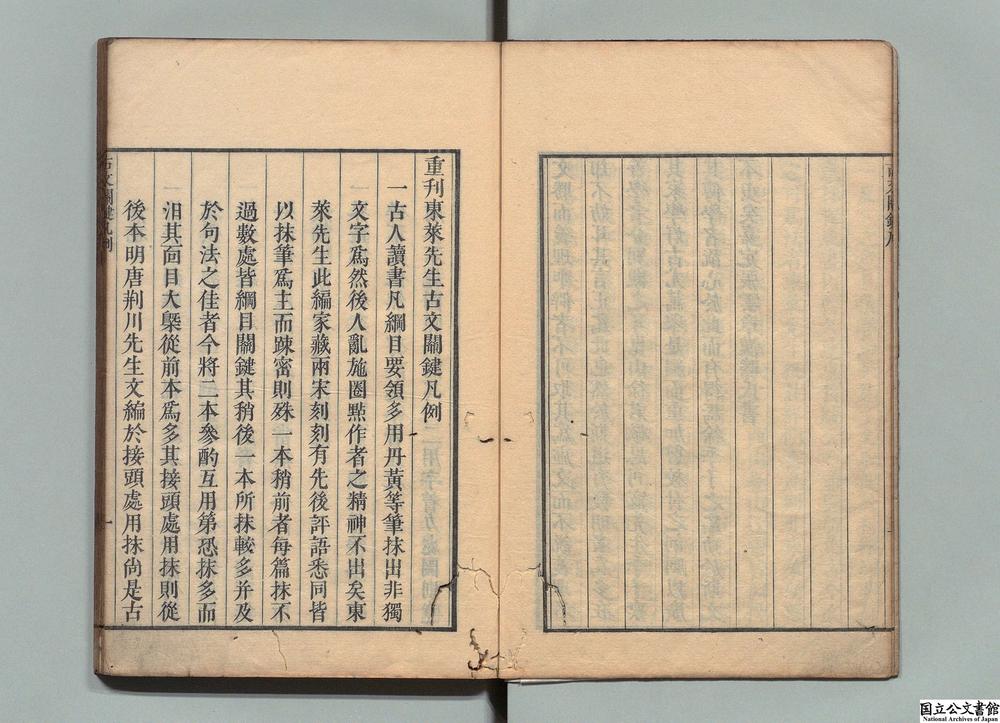 重刊東萊先生古文關鍵凡例
一古人讀書凡綱目要領多用丹黃等筆抹出非獨
文字爲然後人亂施圈點作者之精神不出矣東
萊先生此編家藏兩宋刻刻有先後評語悉同皆
以抹筆爲主而疎密則殊一本稍前者每篇抹不
過數處皆綱目關鍵其稍後一本所抹較多并及
於句法之佳者今將二本參酌互用第恐抹多而
汨其面目大槩從前本爲多其接頭處用抹則從
後本明唐荆川先生文編於接頭處用抹尚是古
古文關鍵凡例
一
国立公文書館
National Archives of Japan